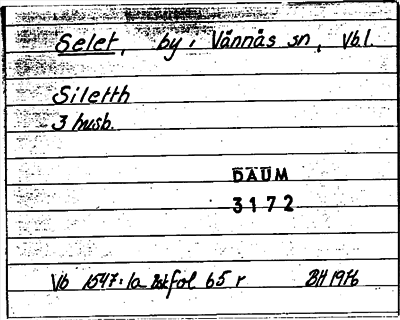 Selet, by i Vännäs sn, Vb.l.
Siletth
3 husb.
DAUM
3172
Vb 1547:1a fol 65 r BH 1976